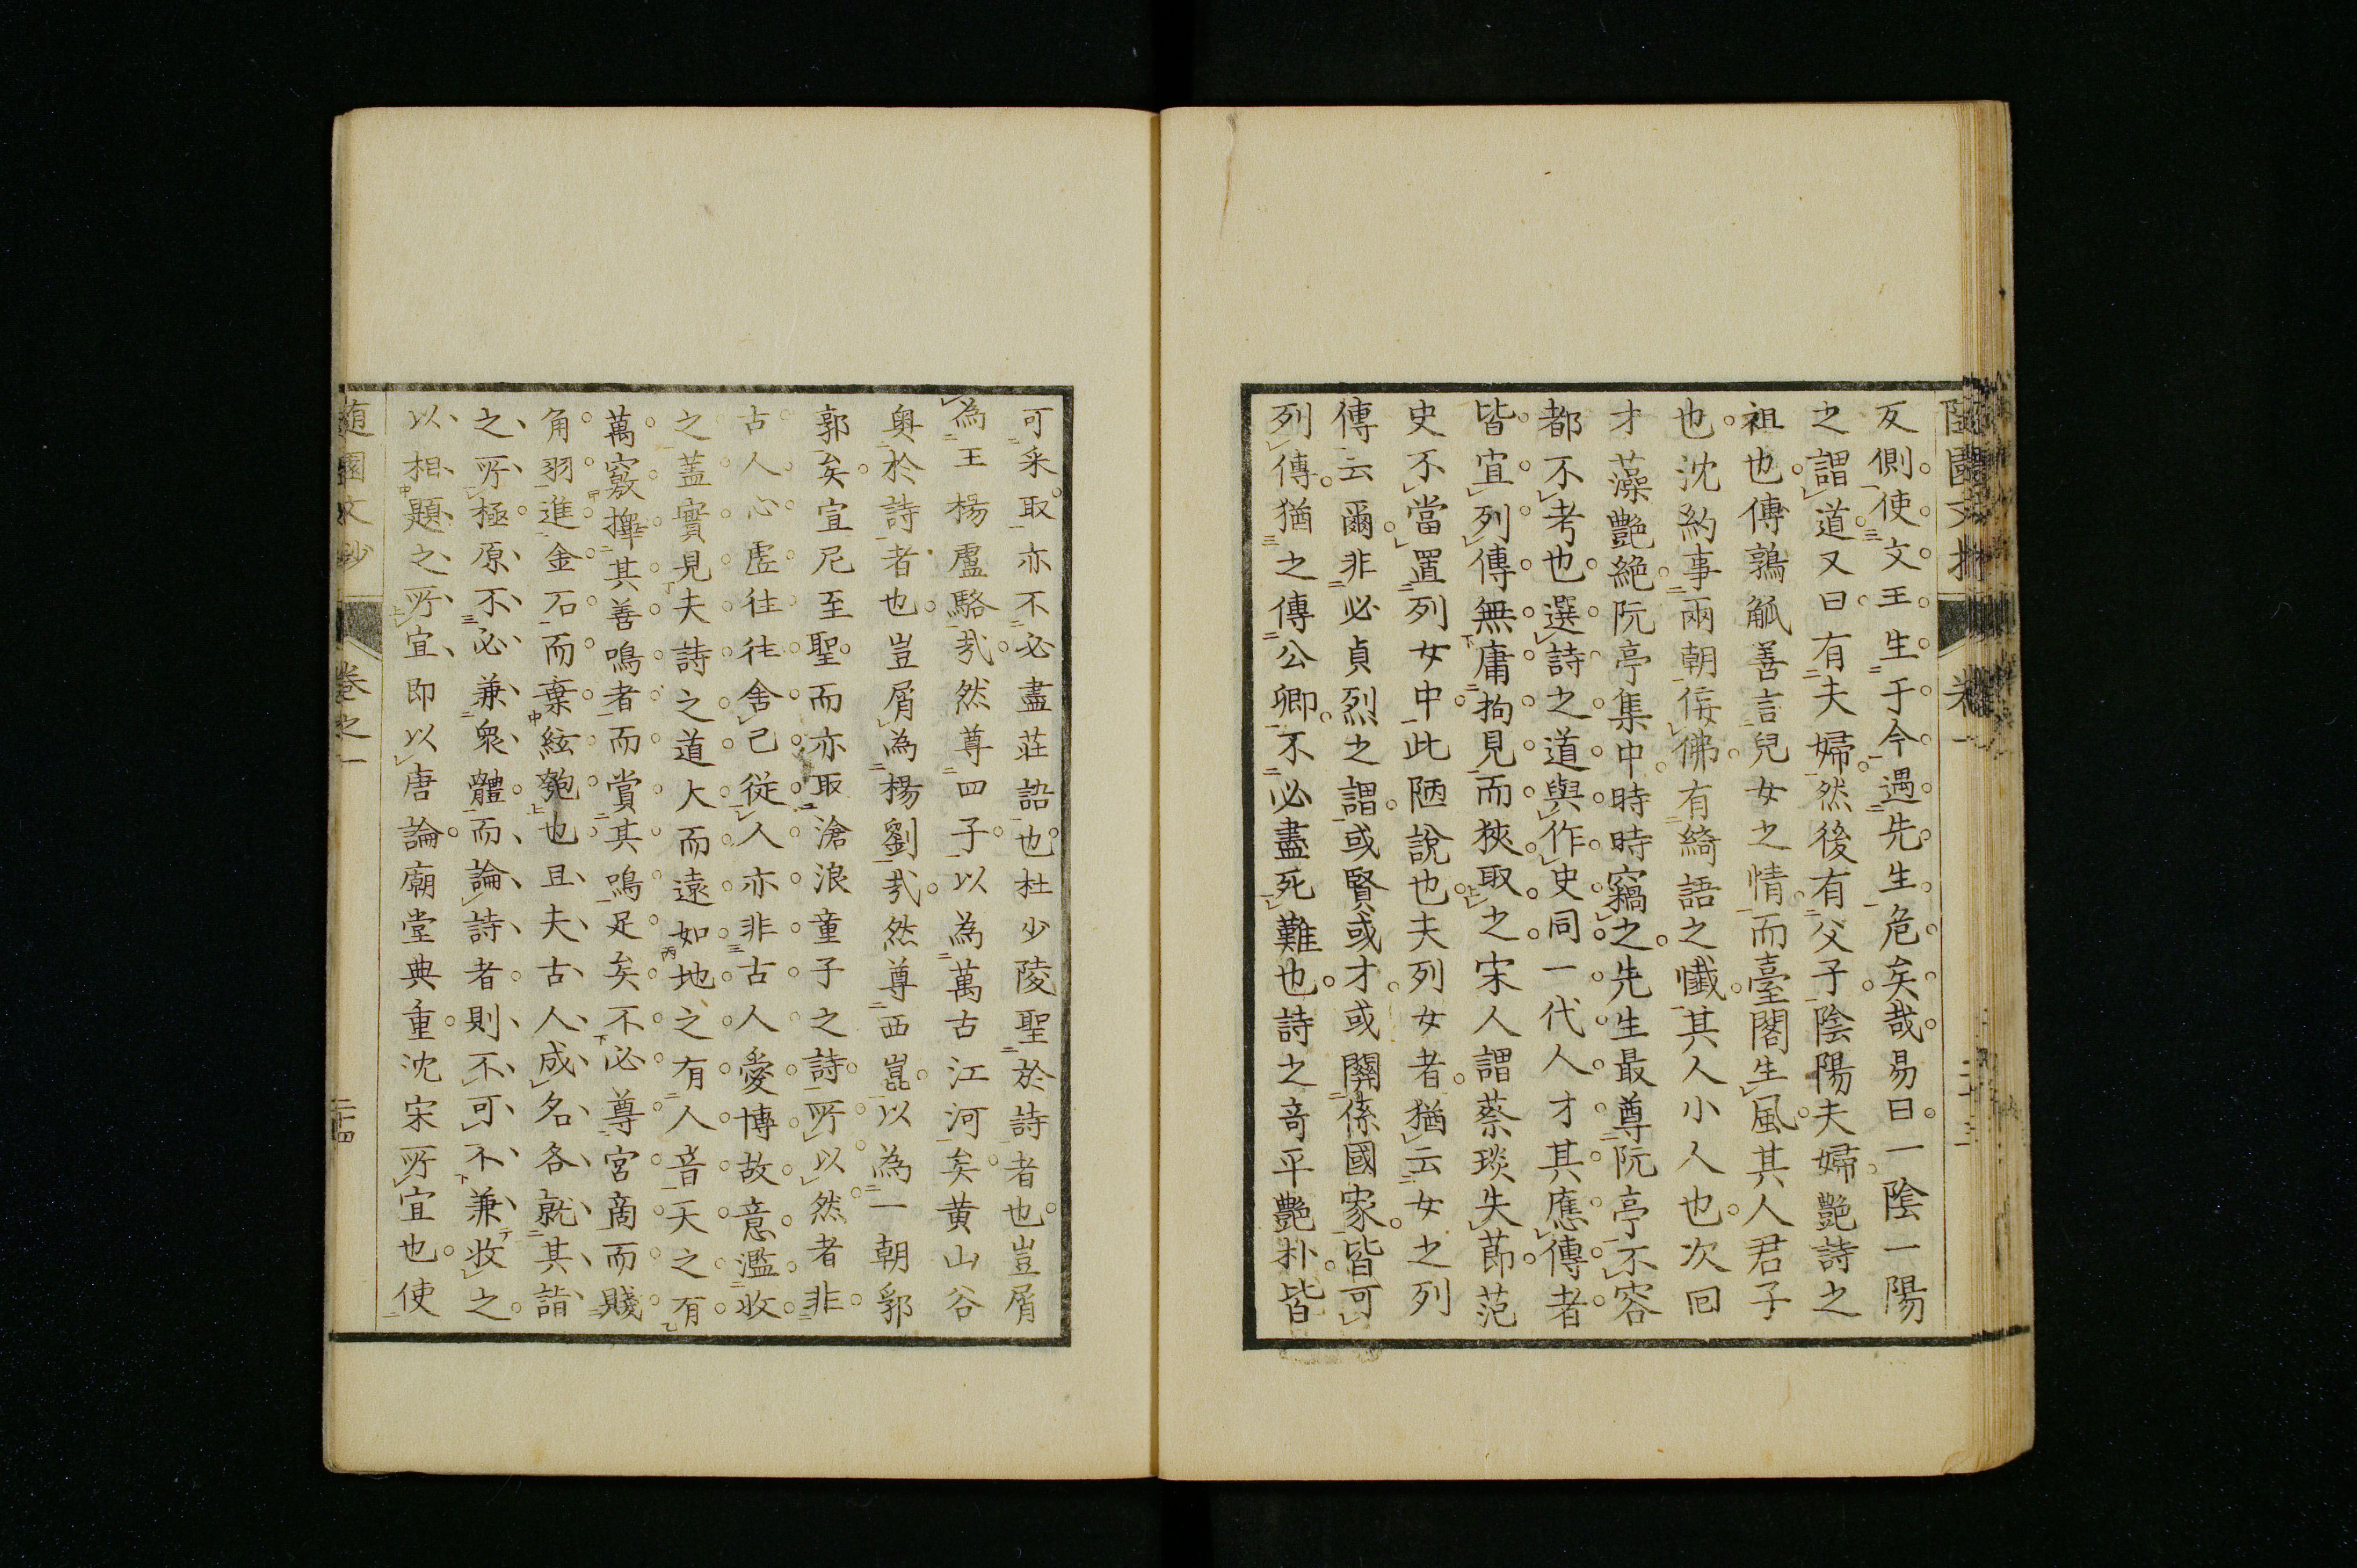 反側使文王生于今遇先生危矣哉易曰一陰一陽
之謂道又曰有夫婦然後有父子陰陽夫婦艷詩之
祖也傳鶉觚善言兒女之情而臺閣生風其人君子
也沈約事兩朝佞佛有綺語之懺其人小人也次回
才藻艷絕阮亭集中時時竊之先生最尊阮亭不容
都不考也選詩之道與作史同一代人才其應傳者
皆宜列傳無庸拘見而狹取之宋人謂蔡琰失節范
史不當置列女中此陋說也夫列女者猶云女之列
傳云爾非必貞烈之謂或賢或才或關係國家皆可
列傳猶之傳公卿不必盡死難也詩之奇平艷朴皆
可采取亦不必盡莊語也杜少陵聖於詩者也豈屑
為王楊盧駱哉然尊四子以為萬古江河矣黃山谷
奧於詩者也豈屑為楊劉哉然尊西崑以為一朝郛
郭矣宣尼至聖而亦取滄浪童子之詩所以然者非
古人心虛往往舍己從人亦非古人愛博故意濫收
之蓋實見夫詩之道大而遠如地之有人音天之有
萬竅擇其善鳴者而賞其鳴足矣不必尊宮商而賤
角羽進金石而棄絃匏也且夫古人成名各就其詣
之所極原不必兼眾體而論詩者則不可不兼收之
以相題之所宜即以唐論廟堂典重沈宋所宜也使
隨園文鈔
卷之一
二十四